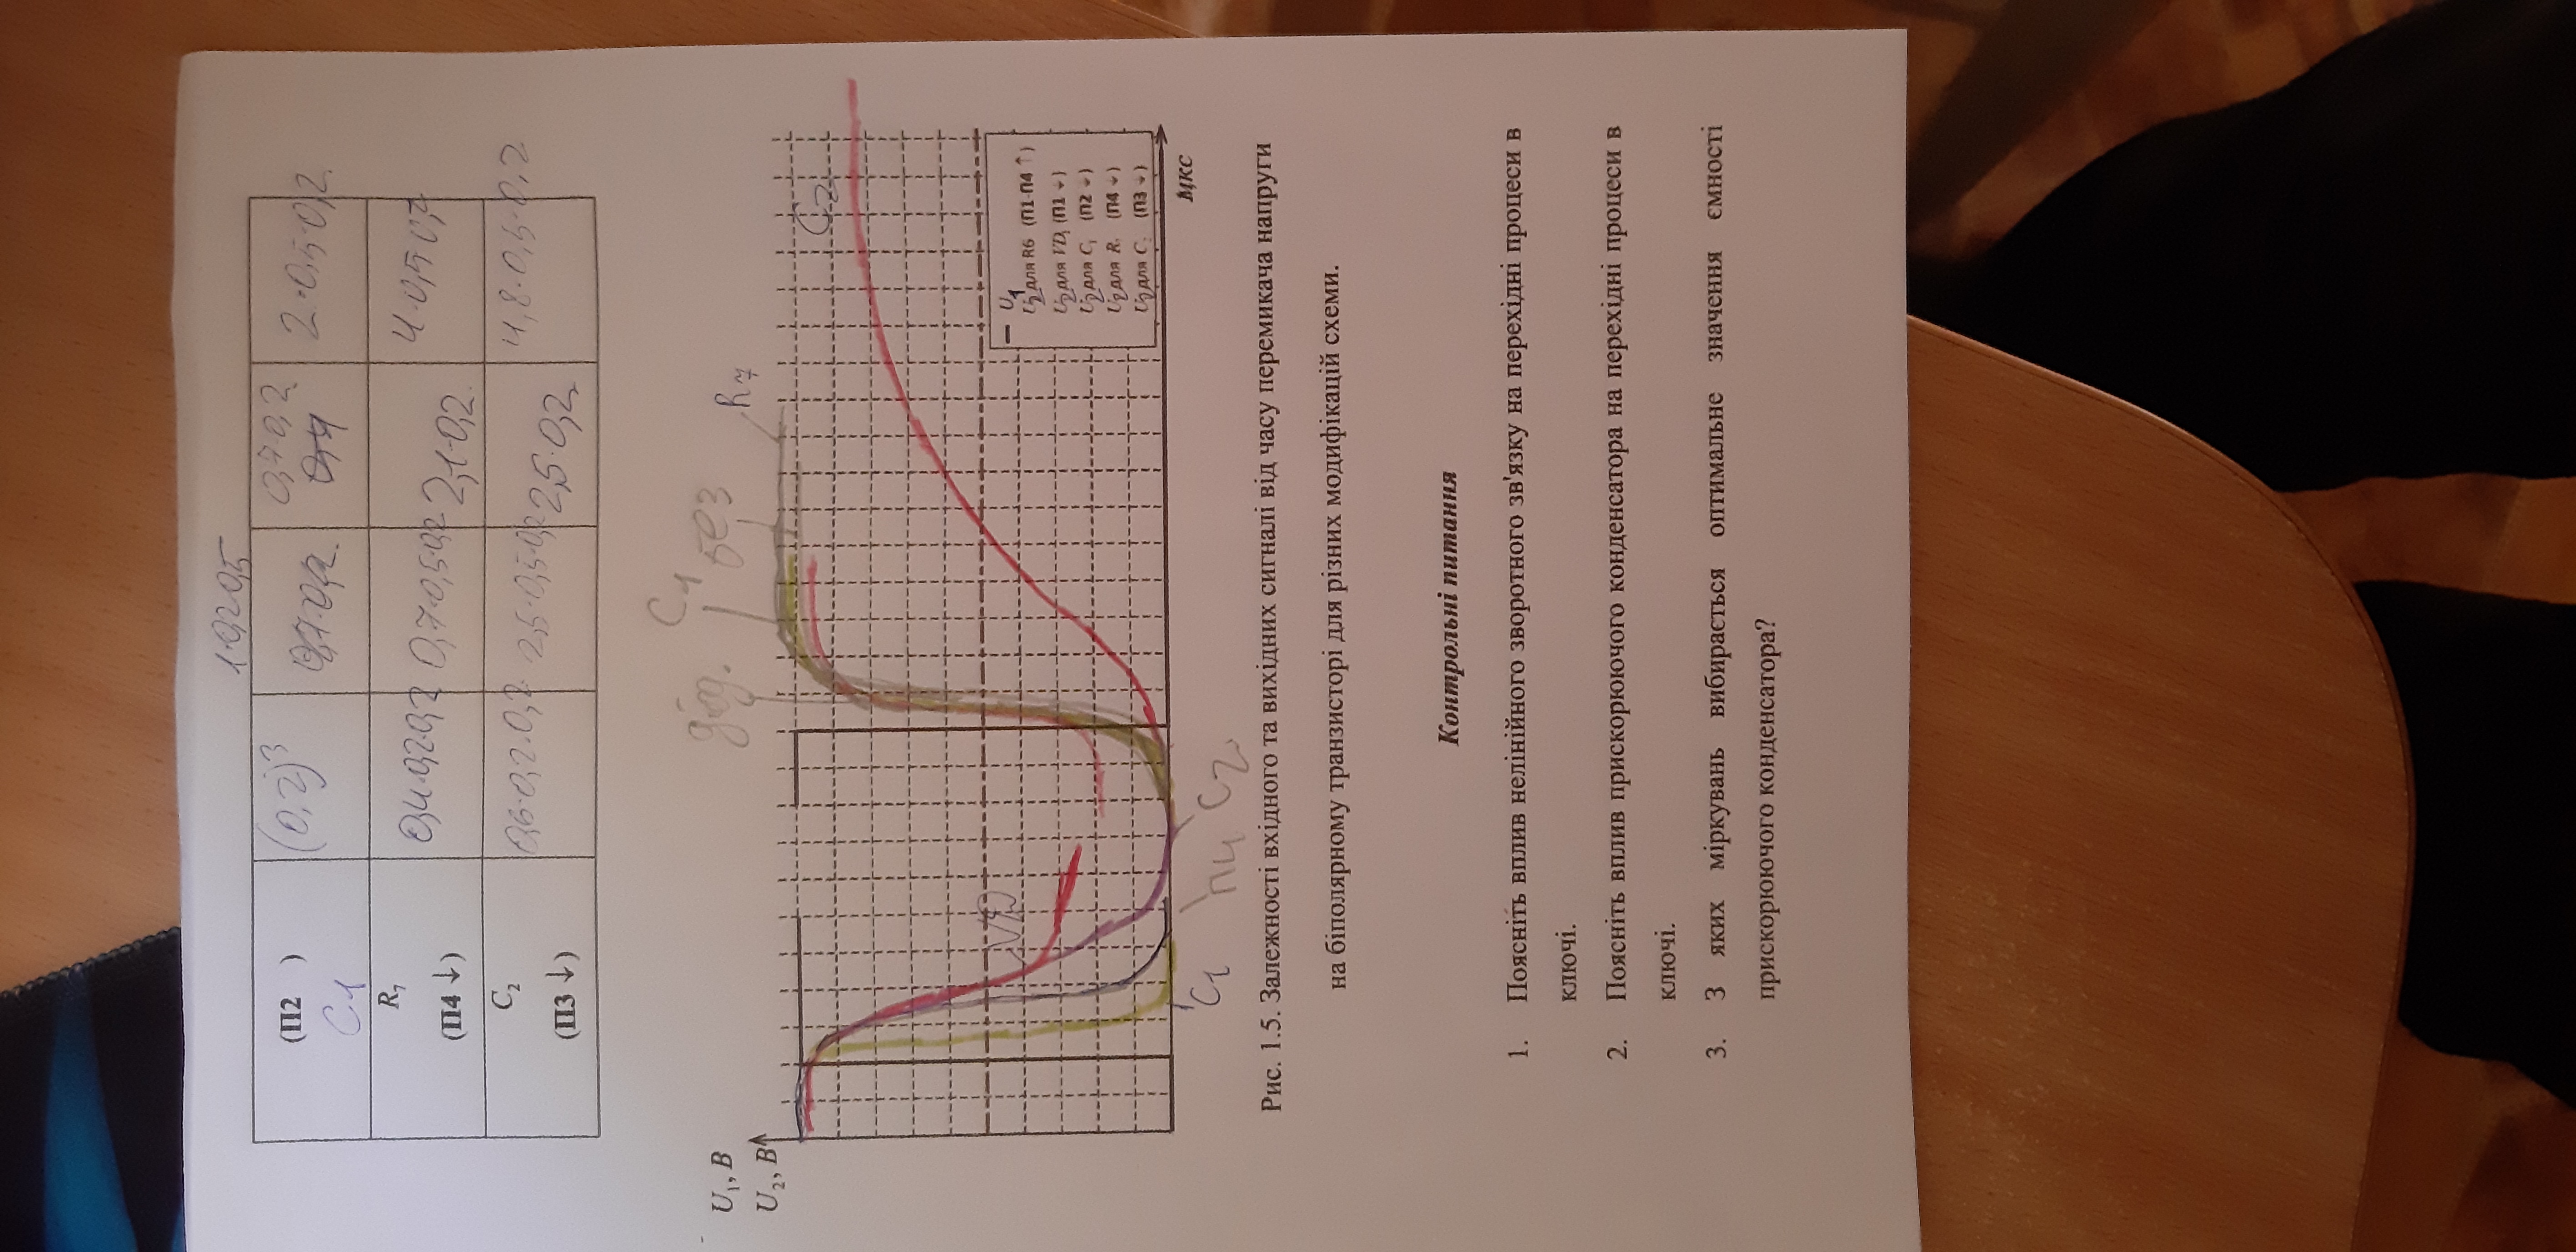 1·0,2·0,5
(П2 ) (0,2)³ 0,7·0,2 2·0,5·0,2
C1 0,7·0,2.
R₇ 0,4·0,2·0,2 0,7·0,5·0,2 2,1·0,2.
(П4 ↓)
C₂ 0,6·0,2·0,2 2,5·0,5·0,2 2,5·0,2 4,8·0,5·0,2
(П3 ↓)
C1
діод. без R7
U₁, В
U₂, В
C2
VD
U1
U2 для R6 (П1-П4 ↑)
U2 для VD₁ (П1 ↓)
U2 для C₁ (П2 ↓)
U2 для R. (П4 ↓)
U2 для C. (П3 ↓)
мкс
C1 П4 C2
Рис. 1.5. Залежності вхідного та вихідних сигналі від часу перемикача напруги
на біполярному транзисторі для різних модифікацій схеми.
Контрольні питання
1. Поясніть вплив нелінійного зворотного зв'язку на перехідні процеси в
ключі.
2. Поясніть вплив прискорюючого конденсатора на перехідні процеси в
ключі.
3. З яких міркувань вибирається оптимальне значення ємності
прискорюючого конденсатора?